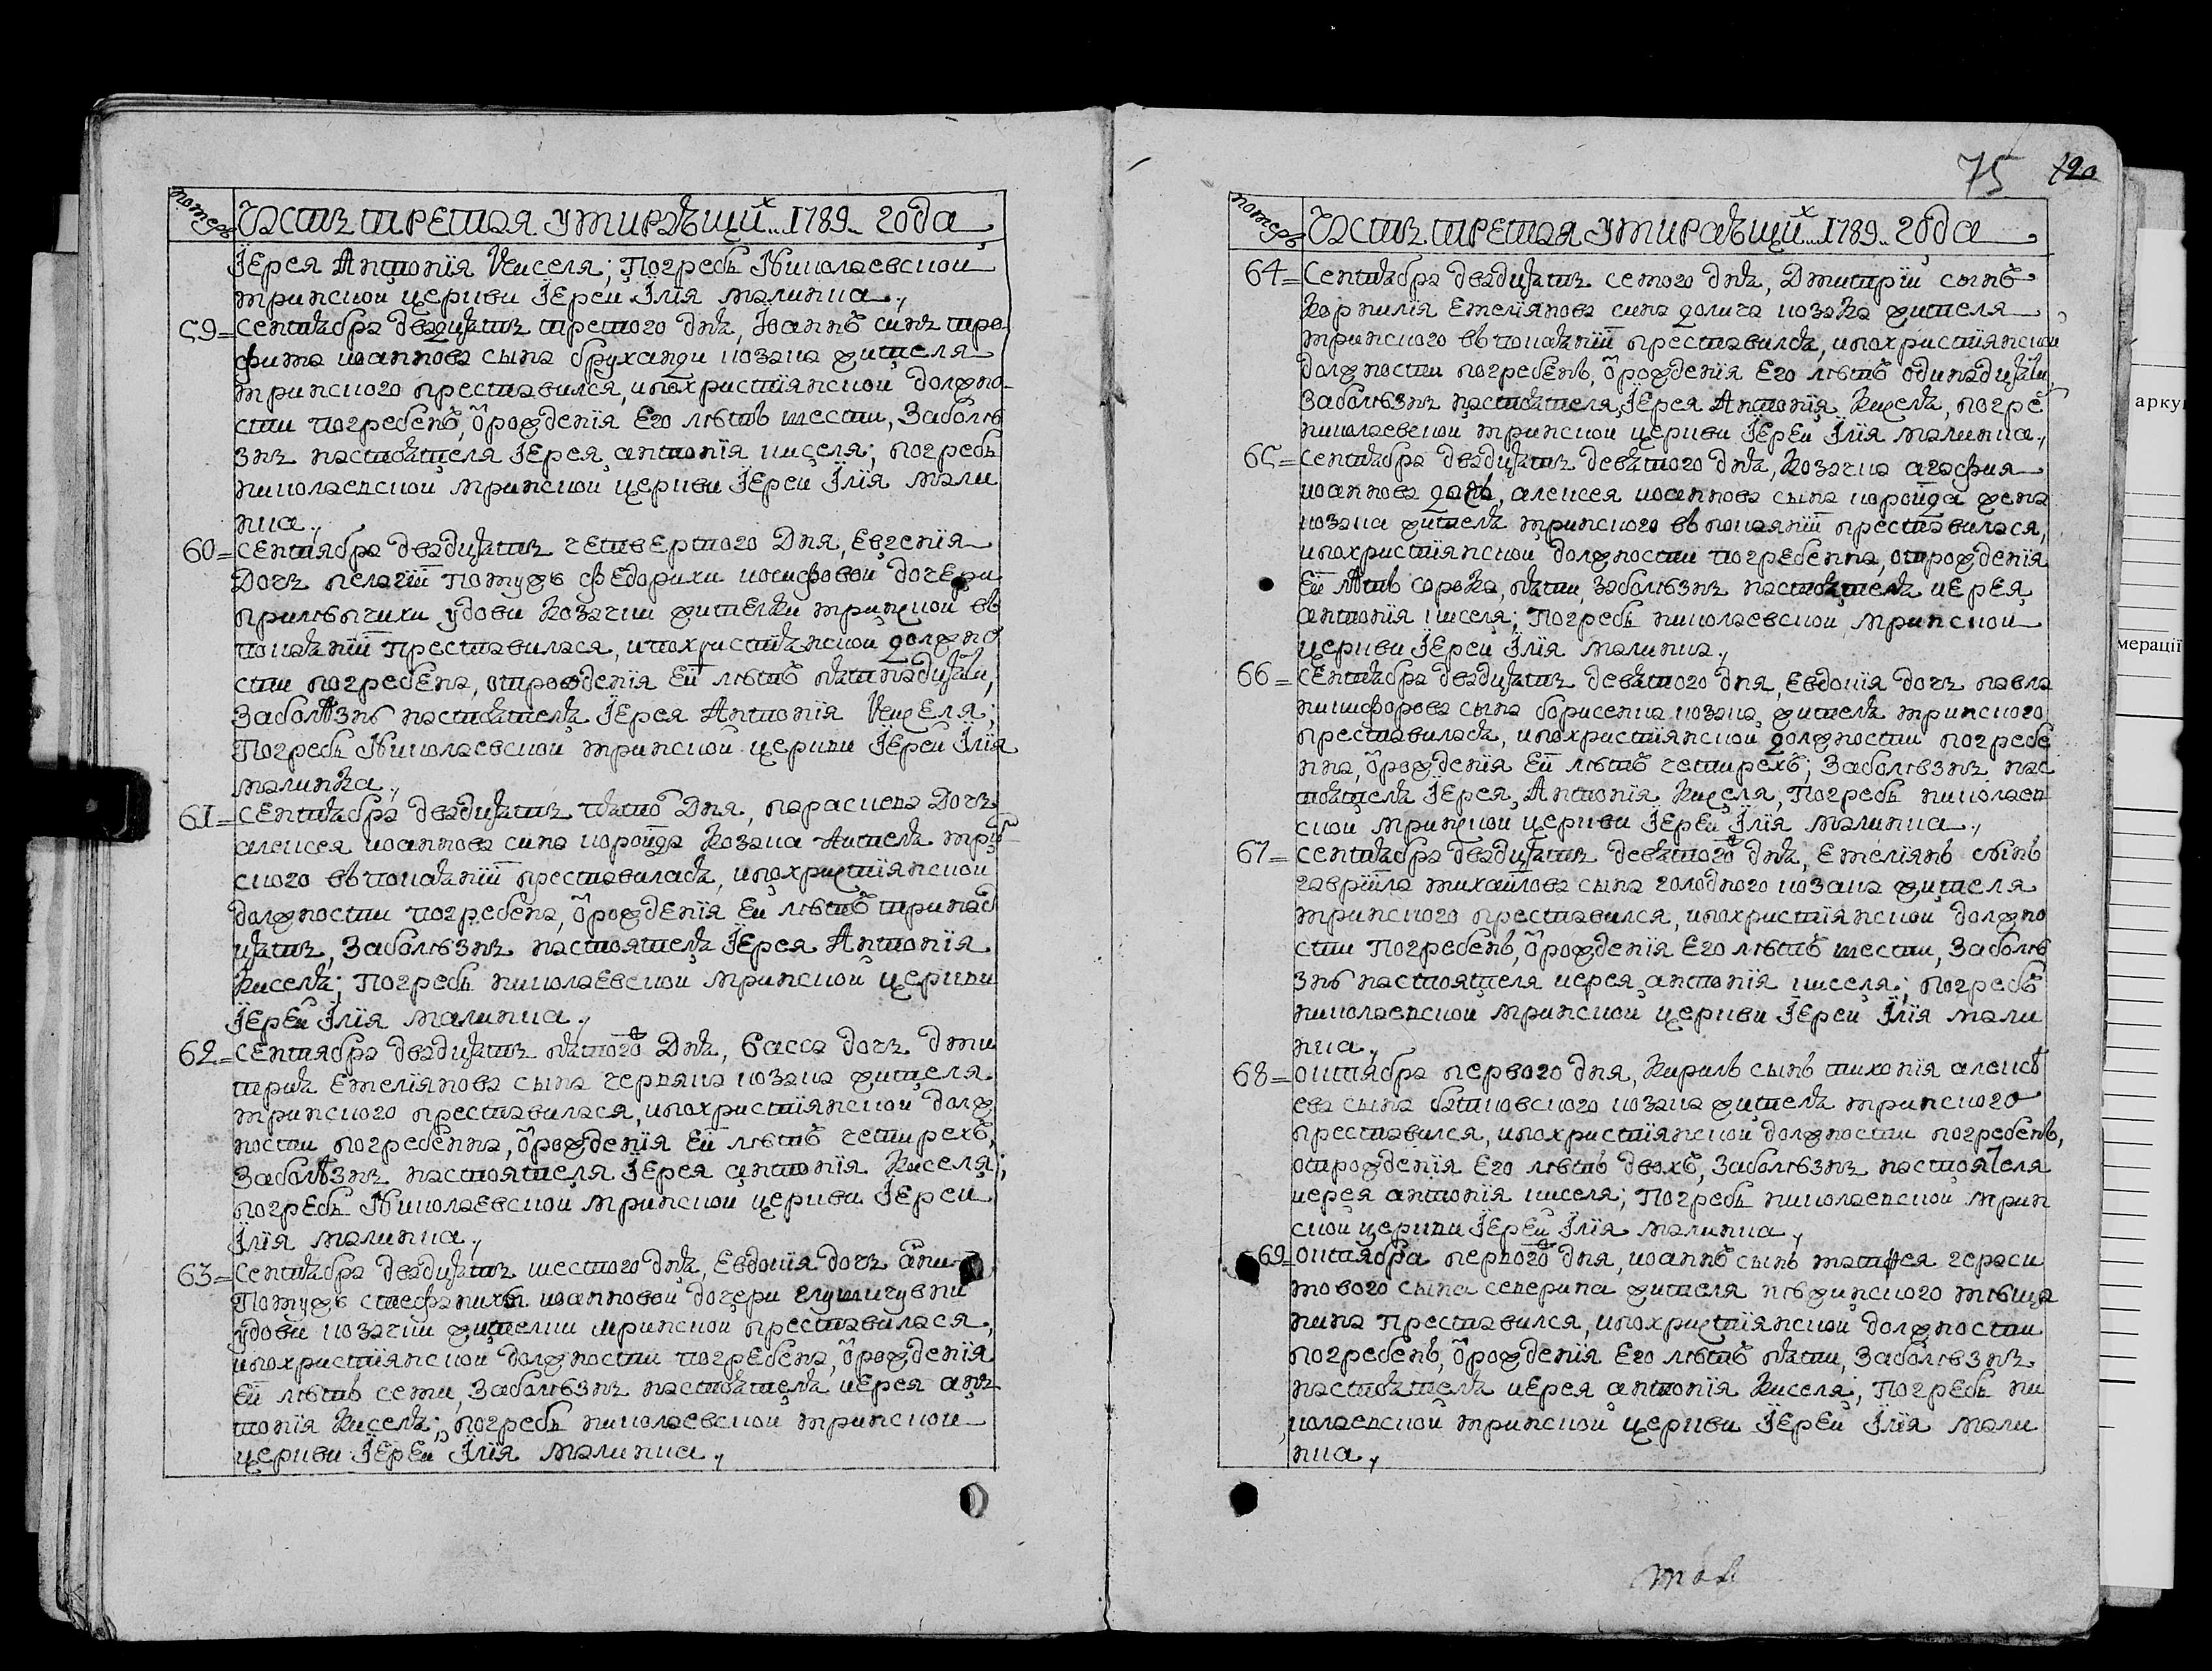 номеръ
Часть третая умирающихъ.. 1789.. года
Іерея Антонїя Киселя; Погребъ Николаевской
мринской церкви Іерей Ілїя малинка.,
59= сентября двадцать третого дня, Іоаннъ синъ тро
фима иоаннова сына бруханди козака жителя
мринского преставился, ипохристїянской должно-
сти погребенъ, ѿрождения Его лѣтъ шести, Заболѣ
знь настоятеля Іерея антонїя киселя; погребъ
николаевской мринской церкви Іерей Ілїя мали
нка.,
60= сентября двадцать четвертого Дня, Евгенїя
Дочь пелагїи помужъ федорихи иосифовой дочери
удови козачки жителки мринской въ
покаянїи Преставилася, ипохристїянской должно
сти погребена, отрождения Ей лѣтъ пятнадцати,
Заболѣзнь настоятеля Іерея Антонїя Киселя;
Погребъ Николаевской мринской церкви Іерей Ілїя
малинка.,
61= Сентября двадцать пятого Дня, параскева Дочь
алексея иоаннова сина коройда Козака жителя мрин
ского въ покаянїи преставилася, ипохристїянской
должности погребена, ѿрождения Ей лѣтъ тринад
цать, Заболѣзнь настоятеля Іерея Антонїя
Киселя; Погребъ николаевской мринской церкви
Іерей Ілїя малинка.,
62= Сентября двадцать пятого Дня, Васса дочь дми
трия Емелїянова сына червяка козака жителя
мринского преставилася, ипохристїянской долж
ности погребенна, ѿрождения Ей лѣтъ четирехъ,
Заболѣзнь настоятеля Іерея антонїя Киселя;
погребъ Николаевской мринской церкви Іерей
Ілїя малинка.,
63= Сентября двадцать шестого дня, Евдокїя дочь анни
Помужъ стефанихи иоанновой дочери
удови козачки жителки мринской преставилася,
ипохристїянской должности погребена, ѿрождения
Ей лѣтъ семи, Заболѣзнь настоятеля иерея ань
тонїя Киселя; погребъ николаевской мринской
церкви Іерей Ілїя малинка.,
75 120
номеръ
Часть третая умирающихъ.. 1789.. года
64= Сентября двадцать семого дня, Дмитрїй сынъ
Корнилїя Емелїянова сина козака жителя
мринского въ покаянїи преставился, ипохристїянской
должности погребенъ, ѿрождения Его лѣтъ одинадцати,
Заболѣзнь настоятеля Іерея Антонїя Киселя, погребъ
николаевской мринской церкви Іерей Ілїя малинка.,
65= сентября двадцать девятого дня, Козачка агафия
иоаннова дочь, алексея иоаннова сына коройда жена
козака жителя мринского въ покаянїи преставилася,
ипохристїянской должности погребенна, отрождения
Ей лѣтъ сорока, пяти, заболѣзнь настоятеля иерея
антонїя киселя; Погребъ николаевской мринской
церкви Іерей Ілїя малинка.,
66= Сентября двадцать девятого дня, Евдокїя дочь павла
никифорова сына борисенка козака жителя мринского
преставилася, ипохристїянской должности погребе
нна, ѿрождения Ей лѣтъ четирехъ; Заболѣзнь нас
тоятеля Іерея Антонїя Киселя, Погребъ николаев
ской мринской церкви Іерей Ілїя малинка.,
67= сентября двадцать девятого дня, Емелїянъ сынъ
гаврїила михаилова сына голодного козака жителя
мринского преставился, ипохристїянской должно
сти Погребенъ, ѿрождения Его лѣтъ шести, Заболѣ
знь настоятеля иерея антонїя киселя; погребъ
николаевской мринской церкви Іерей Ілїя мали
нка.,
68= октября первого дня, Кирилъ сынъ тихонїя алексѣ
ева сына козака жителя мринского
преставился, ипохристїянской должности погребенъ,
отрождения Его лѣтъ двохъ, Заболѣзнь настоятеля
иерея антонїя киселя; Погребъ николаевской мрин
ской церкви Іерей Ілїя малинка.,
69= октября первого дня, иоаннъ сынъ матфея гераси
мового сына северина жителя нѣжинского мѣща
нина Преставился, ипохристїянской должности
погребенъ, ѿрождения Его лѣтъ пяти, Заболѣзнь
настоятеля иерея антонїя Киселя; Погребъ ни
колаевской мринской церкви Іерей Ілїя мали
нка.,
аркуш
мерації